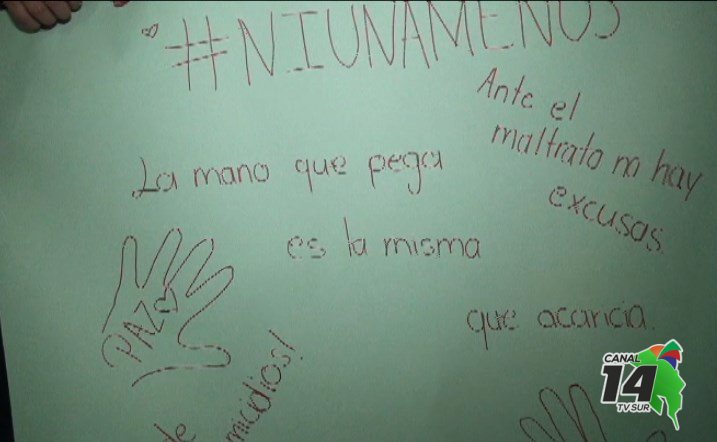 #NIUNAMENOS
Ante el
maltrato no hay
excusas.
La mano que pega
es la misma
que acaricia.
PAZ
de
micidios!
CANAL
14
TV SUR